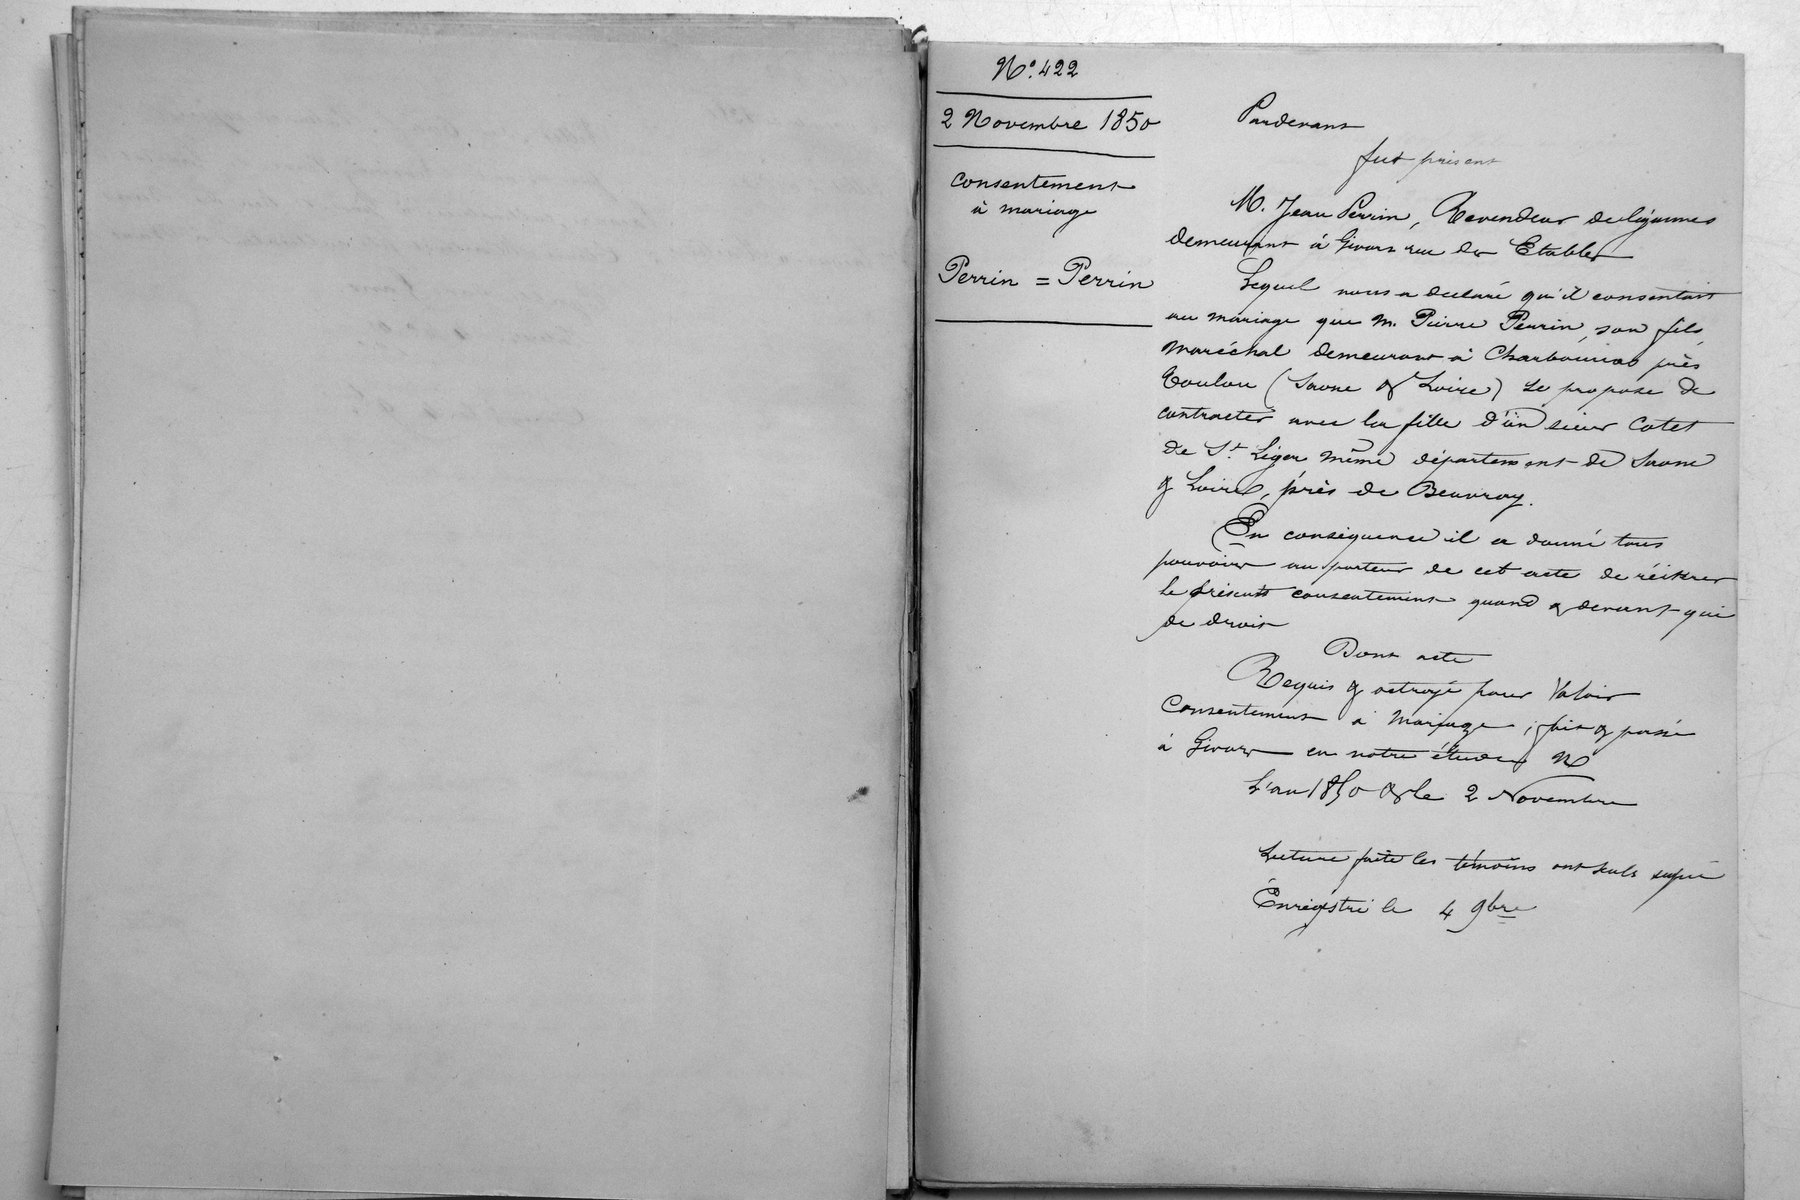 N.° 422
2 Novembre 1850
Consentement
à mariage
Perrin = Perrin
Pardevant
fut présent
M. Jean Perrin, Revendeur de légumes
demeurant à Givors rue des Etables
Lequel nous a déclaré qu'il consentait
au mariage que M. Pierre Perrin, son fils,
Maréchal demeurant à près
Toulon (Saone & Loire) se propose de
contracter avec la fille d'un sieur Cotet
de St. Léger même département de Saone
& Loire, près de Beuvray.
En conséquence il a donné tous
pouvoirs au porteur de cet acte de réitérer
le présent consentement quand & devant qui
de droit
Dont acte
Requis & octroyé pour Valoir
Consentement à Mariage, fait & passé
à Givors en notre étude,
L'an 1850 & le 2 Novembre
Lecture faite les témoins ont seuls signé
Enregistré le 4 9bre